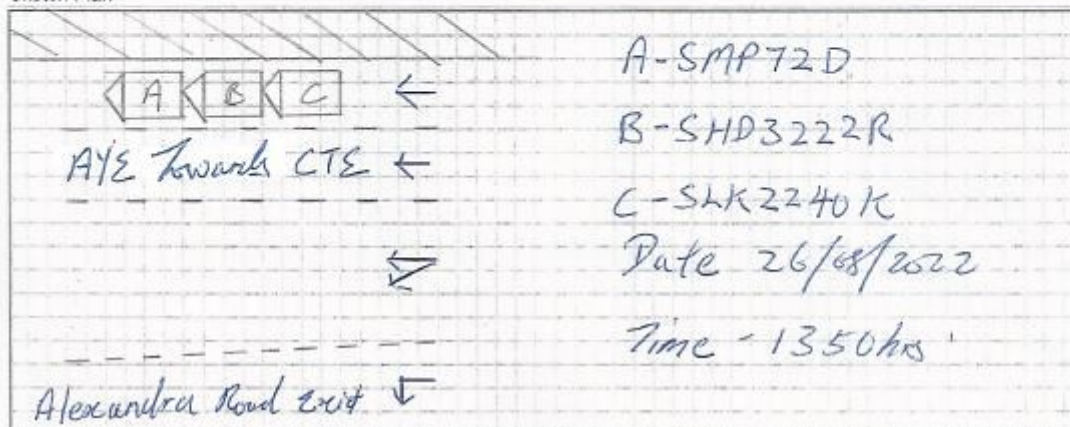 A
B
C
AYE Towards CTE
Alexandra Road Exit
A-SMP72D
B-SHD3222R
C-SLK2240K
Date 26/08/2022
Time - 1350hrs